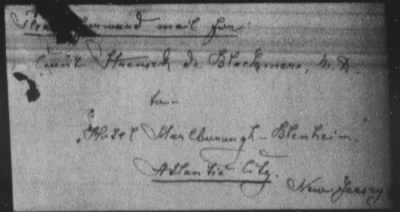 Please forward mail for:
Count Strensch de Blackmere, M.D.
to—
"Hotel Marlborough-Blenheim,"
Atlantic City.
New Jersey